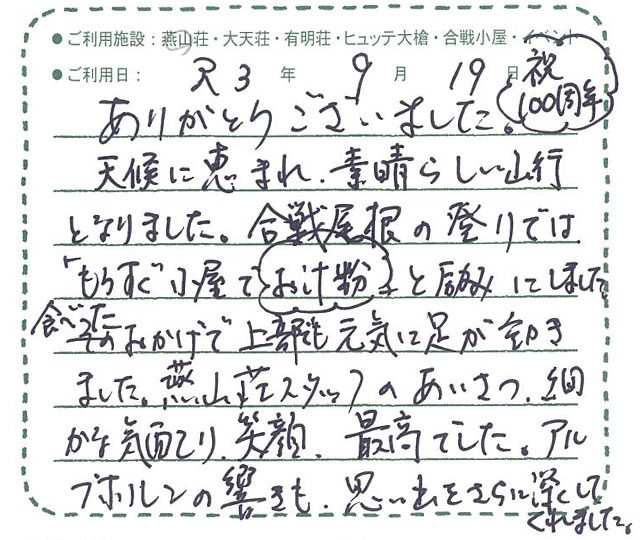 ●ご利用施設：燕山荘・大天荘・有明荘・ヒュッテ大槍・合戦小屋・イベント
●ご利用日： R3 年 9 月 19 日
祝
100周年
ありがとうございました。
天候に恵まれ、素晴らしい山行
となりました。合戦尾根の登りでは
「もうすぐ小屋でお汁粉」と励みにしました。
食べた
そのおかげで上部も元気に足が動き
ました。燕山荘スタッフのあいさつ、細
かな気配り、笑顔、最高でした。アル
プホルンの響きも、思い出をさらに深くして
くれました。